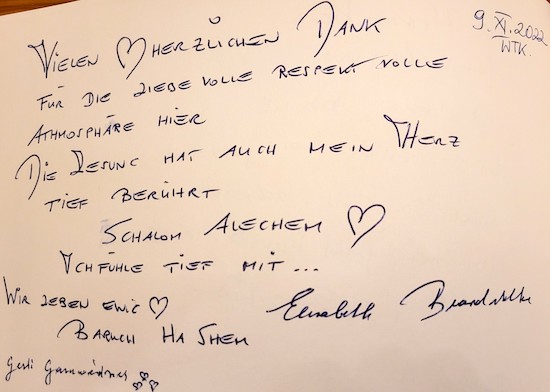 9. XI. 2022
WTK.
VIELEN ♡ HERZLICHEN DANK
FÜR DIE LIEBEVOLLE RESPEKTVOLLE
ATHMOSPHÄRE HIER
DIE LESUNG HAT AUCH MEIN HERZ
TIEF BERÜHRT
SCHALOM ALECHEM ♡
ICH FÜHLE TIEF MIT...
WIR LEBEN EWIG ♡
Elisabeth
BARUCH HA SHEM